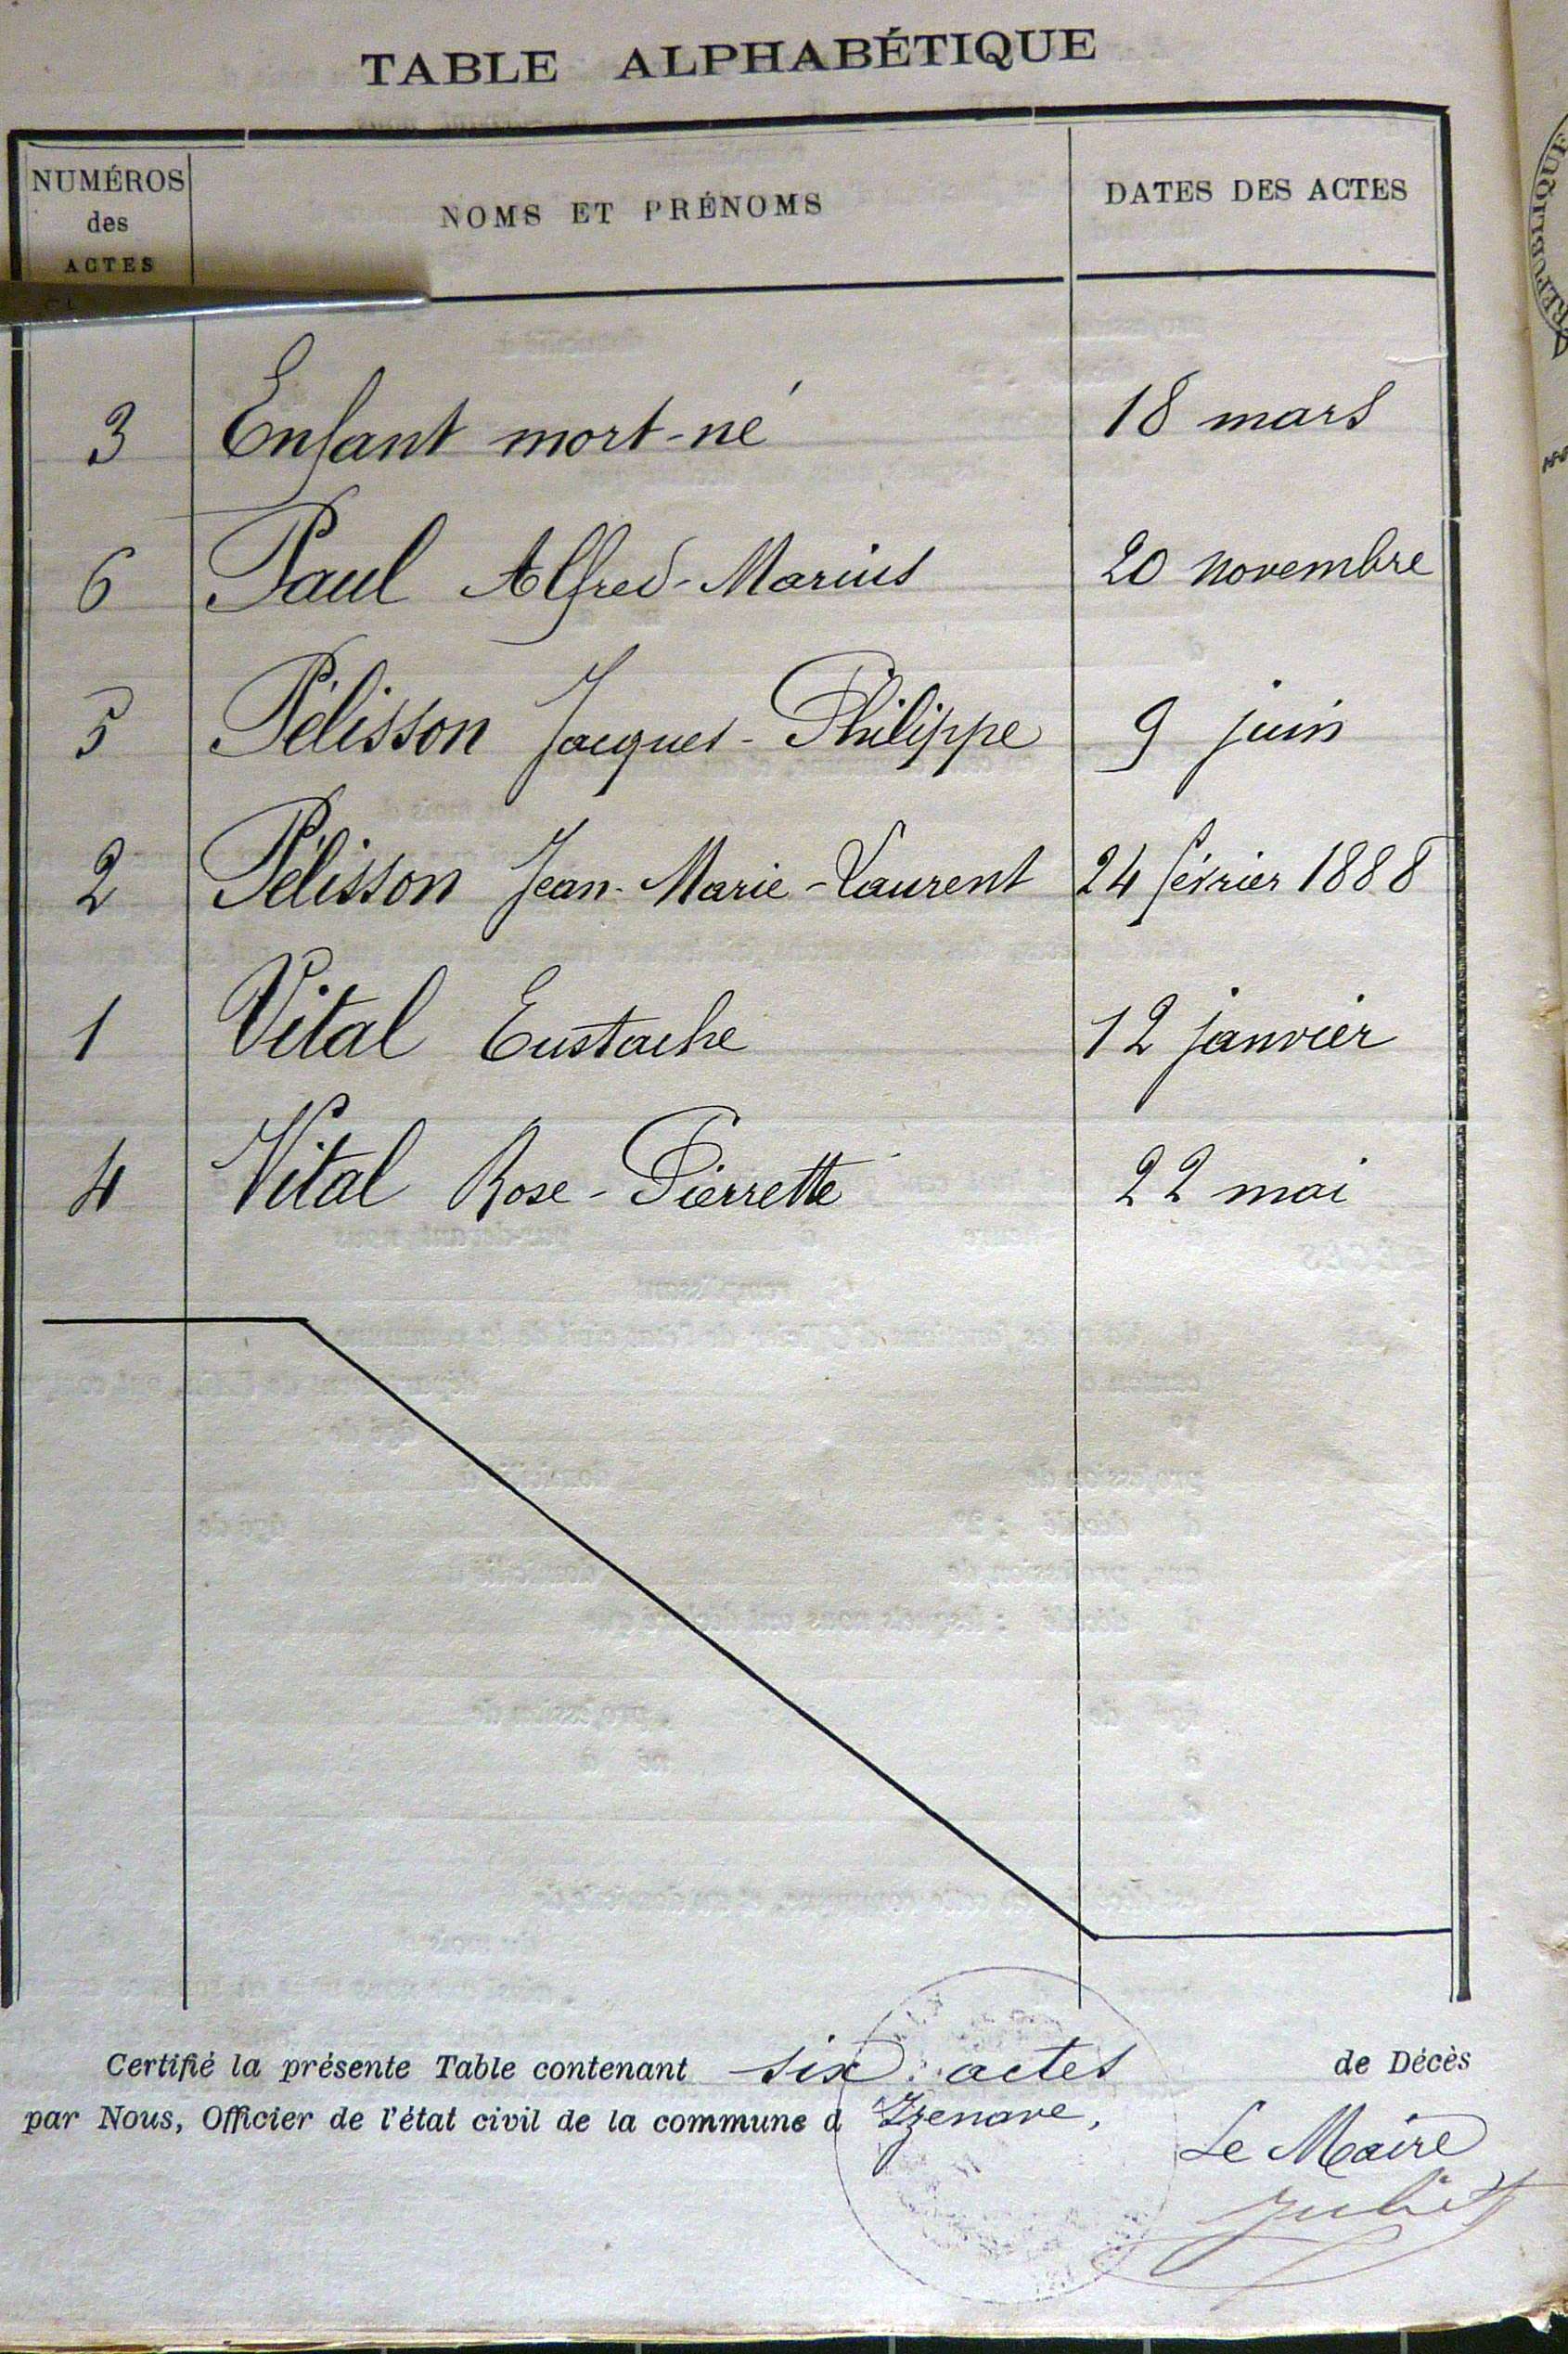 TABLE ALPHABÉTIQUE
NUMÉROS des ACTES
NOMS ET PRÉNOMS
DATES DES ACTES
3 Enfant mort-né 18 mars
6 Paul Alfred-Marius 20 novembre
5 Pélisson Jacques-Philippe 9 juin
2 Pélisson Jean-Marie-Laurent 24 février 1888
1 Vital Eustache 12 janvier
4 Vital Rose-Pierrette 22 mai
Certifié la présente Table contenant six actes de Décès
par Nous, Officier de l'état civil de la commune d Izenave,
Le Maire